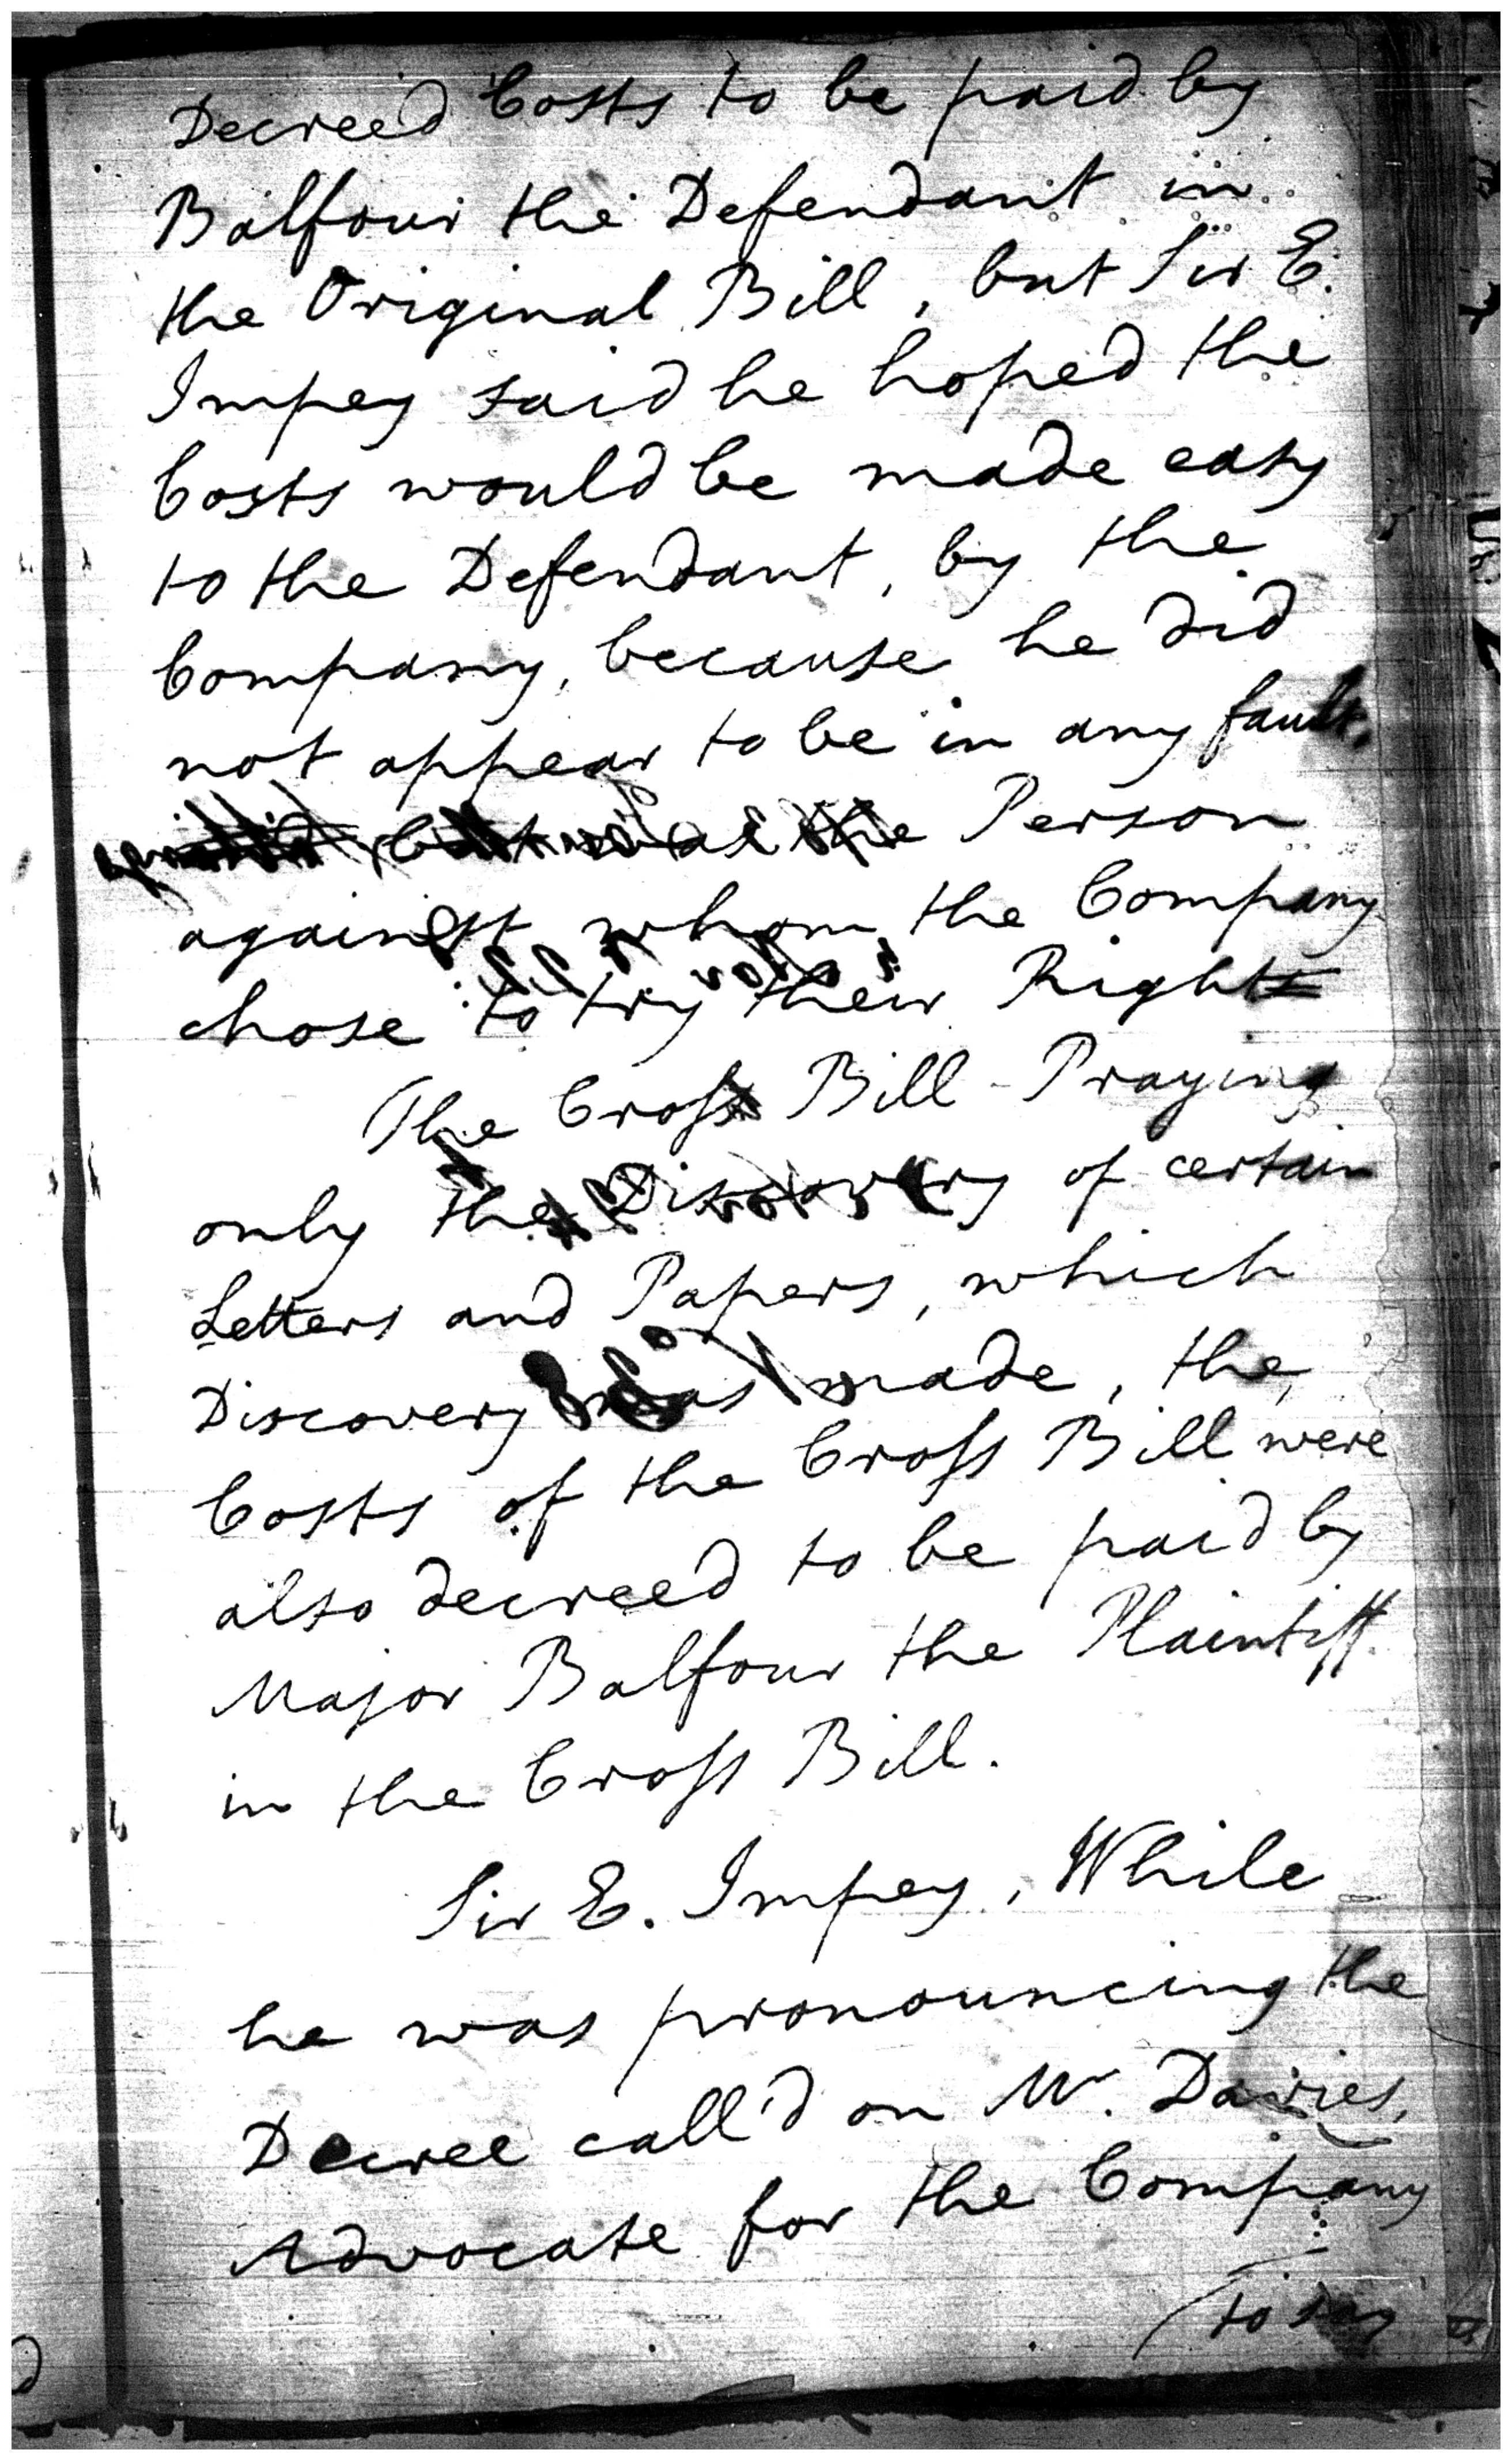 Decreed Costs to be paid by
Balfour the Defendant in
the Original Bill, but Sir E.
Impey said he hoped the
Costs would be made easy
to the Defendant, by the
Company, because he did
not appear to be in any fault,
but was the Person
against whom the Company
chose to try their Rights
The Cross Bill Praying
only the Discovery of certain
Letters and Papers, which
Discovery was made, the
Costs of the Cross Bill were
also decreed to be paid by
Major Balfour the Plaintiff
in the Cross Bill.
Sir E. Impey, While
he was pronouncing the
Decree call'd on Mr. Davies,
Advocate for the Company
to say